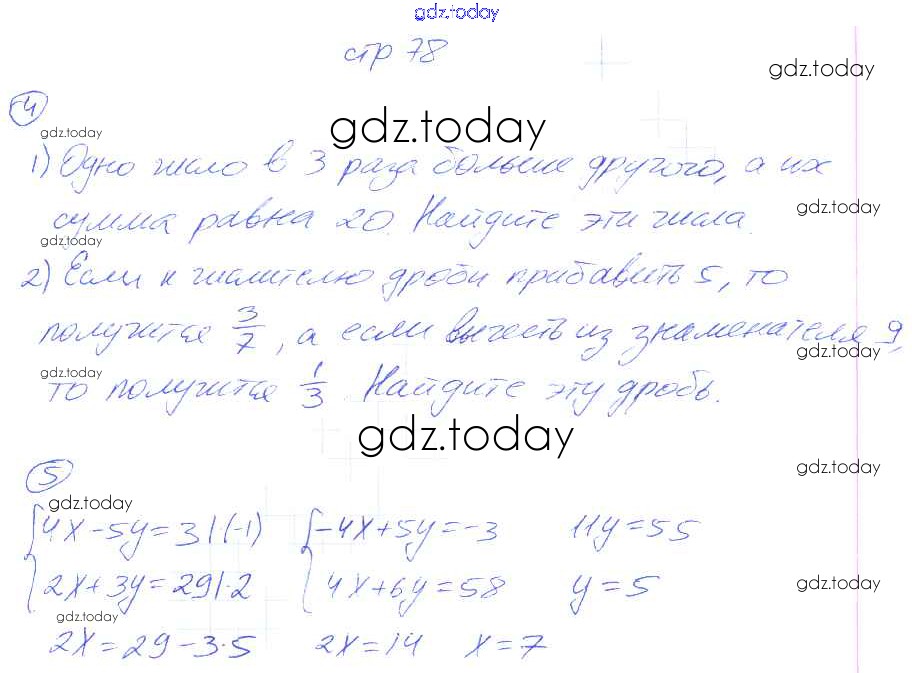 gdz.today
стр 78
gdz.today
4
gdz.today
gdz.today
1) Одно число в 3 раза больше другого, а их
gdz.today
сумма равна 20. Найдите эти числа.
gdz.today
2) Если к числителю дроби прибавить 5, то
получится 3/7, а если вычесть из знаменателя 9,
gdz.today
gdz.today
то получится 1/3. Найдите эту дробь.
gdz.today
5
gdz.today
gdz.today
{4x-5y=3|(-1) {-4x+5y=-3 11y=55
{2x+3y=29|·2 {4x+6y=58 y=5
gdz.today
gdz.today
2x=29-3·5 2x=14 x=7